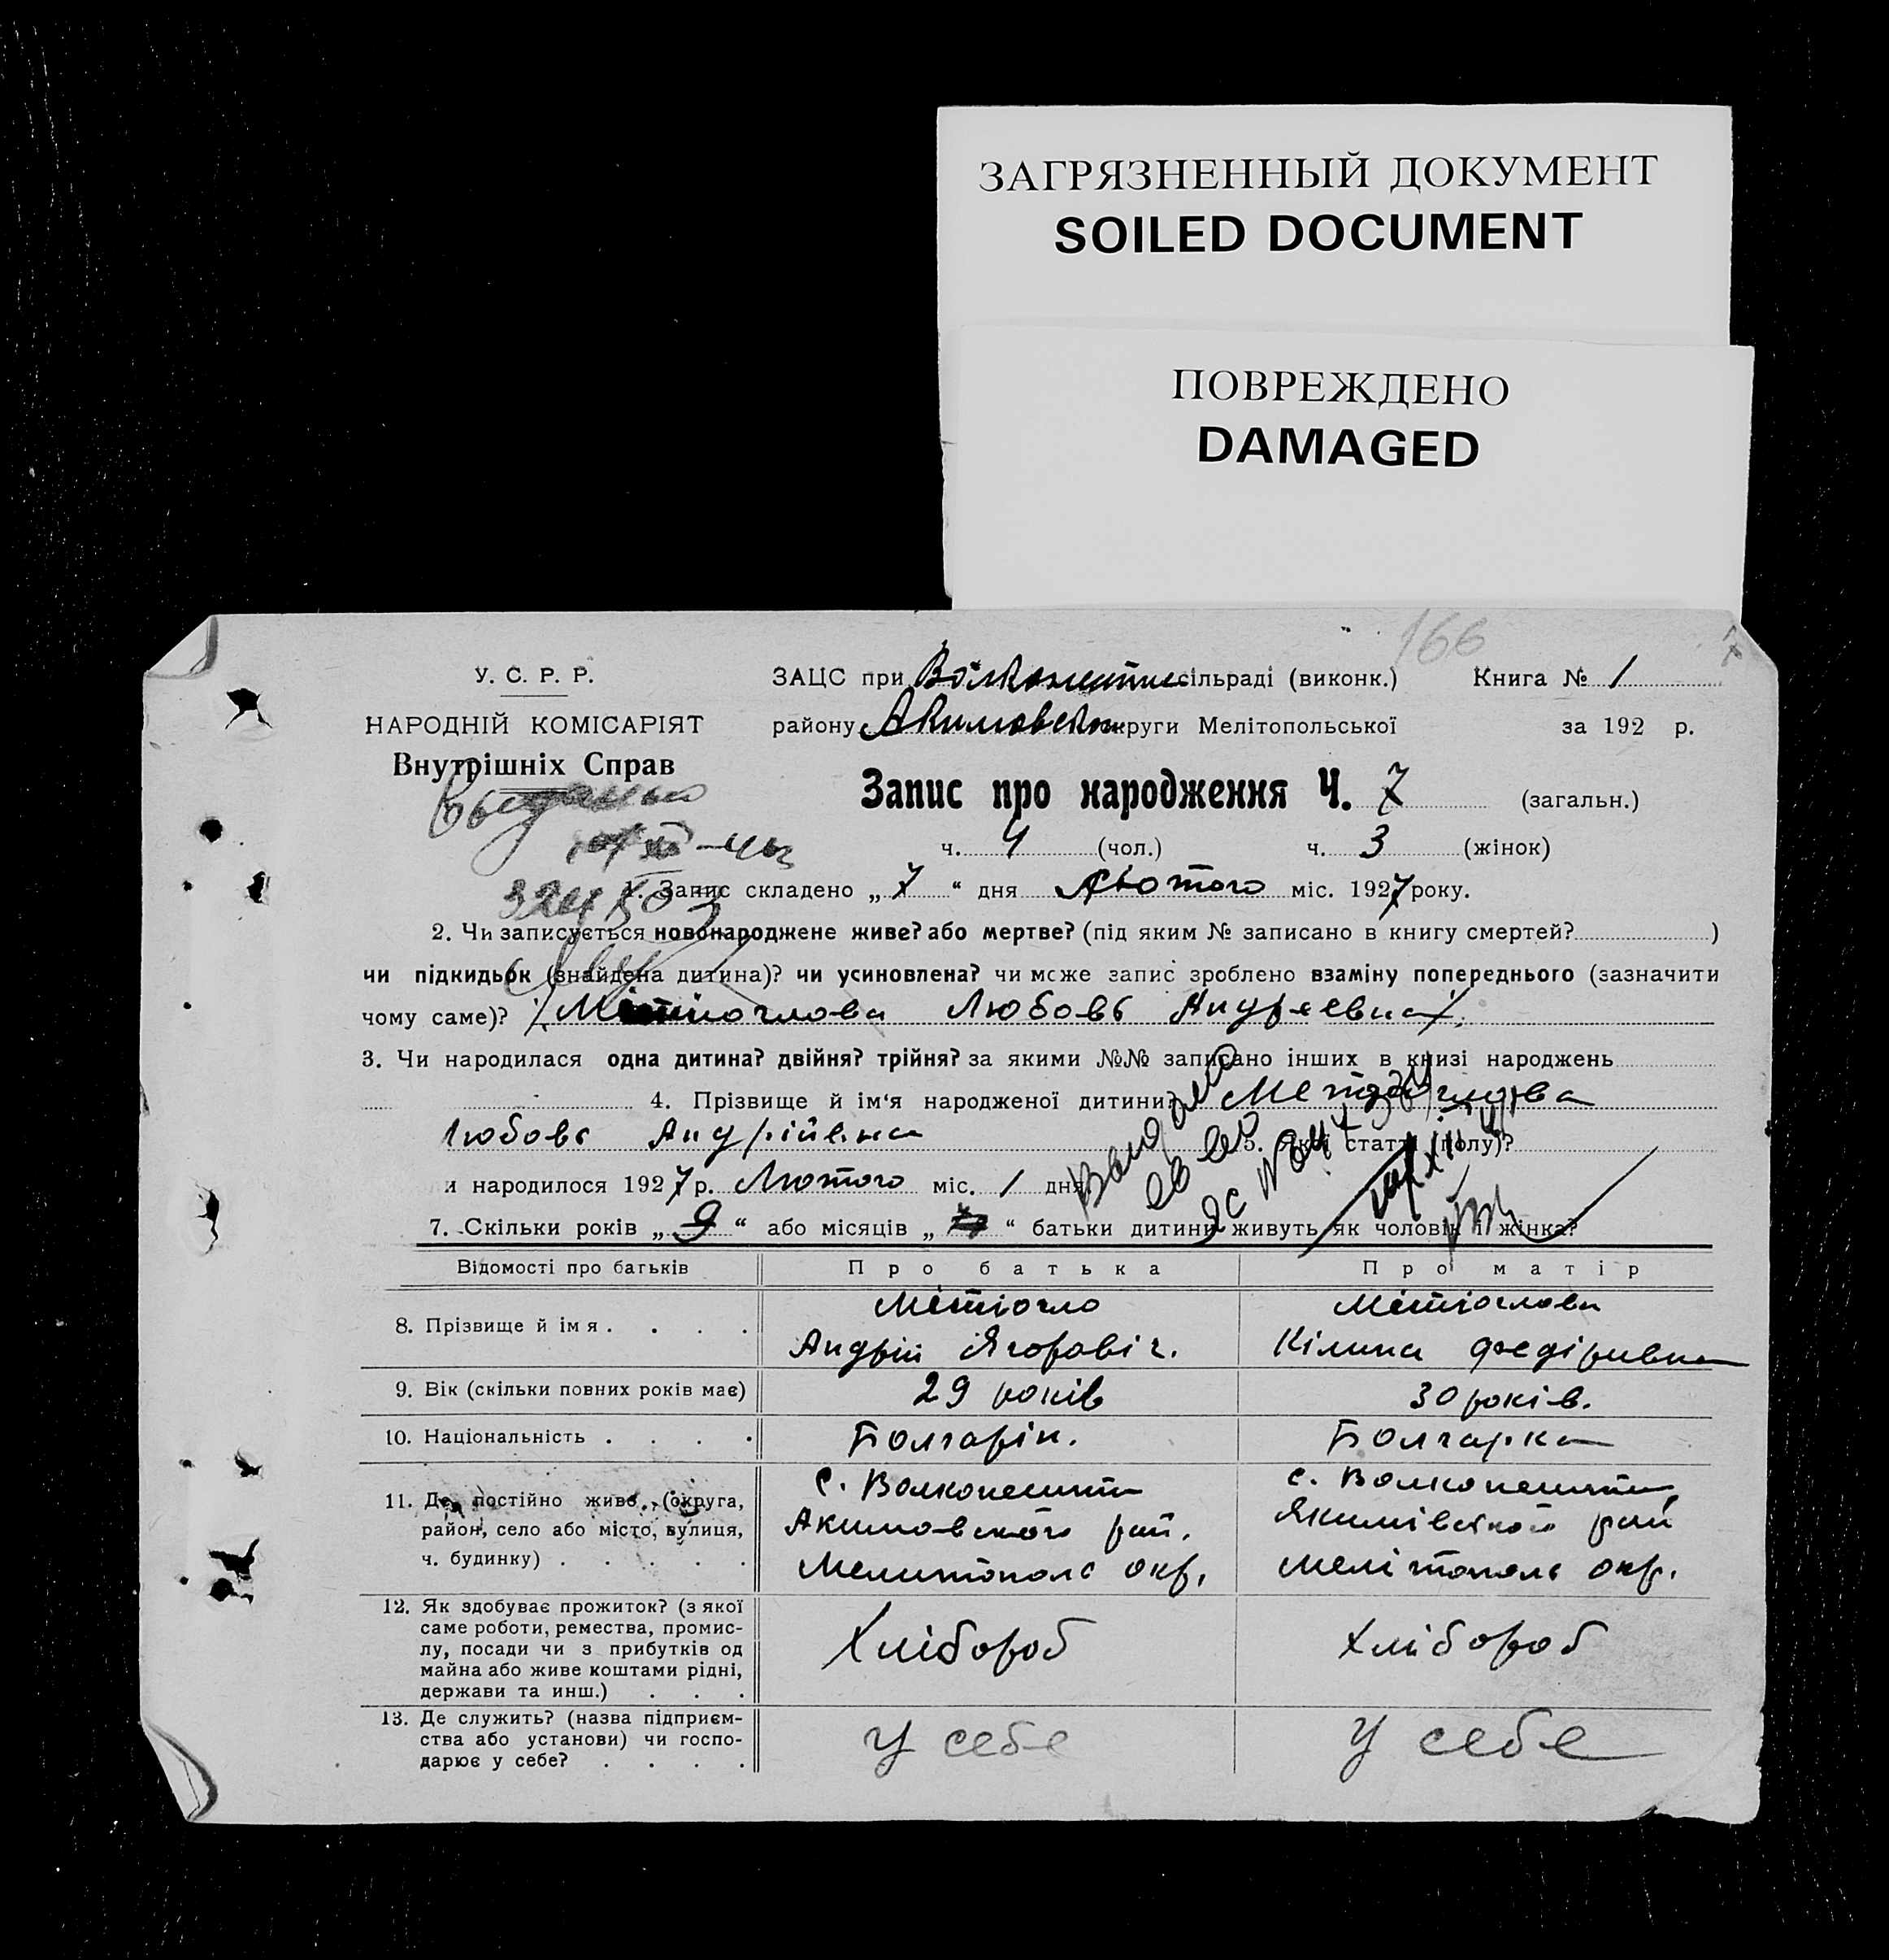 ЗАГРЯЗНЕННЫЙ ДОКУМЕНТ
SOILED DOCUMENT
ПОВРЕЖДЕНО
DAMAGED
166
У. С. Р. Р.
НАРОДНІЙ КОМІСАРІЯТ
Внутрішніх Справ
ЗАЦС при сільраді (виконк.) Книга № 1
району округи Мелітопольської за 192 р.
Запис про народження Ч. 7 (загальн.)
ч. 4 (чол.) ч. 3 (жінок)
1. Запис складено „ 7 “ дня Лютого міс. 1927 року.
2. Чи записується новонароджене живе? або мертве? (під яким № записано в книгу смертей? )
чи підкидьок (знайдена дитина)? чи усиновлена? чи може запис зроблено взаміну попереднього (зазначити
чому саме)? Любовь Андреевна
3. Чи народилася одна дитина? двійня? трійня? за якими №№ записано інших в книзі народжень
4. Прізвище й ім'я народженої дитини?
Любовь Андрійвна 5. Якої статті (полу)?
и народилося 1927 р. Лютого міс. 1 дня
7. Скільки років „ 9 “ або місяців „ “ батьки дитини живуть як чоловік і жінка?
Відомості про батьків Про батька Про матір
8. Прізвище й імя . . . . Мітіогло Мітіоглова
Андрій Ягоравіч. Кілина Федіривна
9. Вік (скільки повних років має) 29 років 30 років.
10. Національність . . . . Болгарін. Болгарка
11. Де постійно живе (округа, район, село або місто, вулиця, ч. будинку) . . . . .
с. Волконешти с. Волконешти,
Акимовского рай. Якимівского рай
Мелитополь окр. Мелітополь окр.
12. Як здобуває прожиток? (з якої
саме роботи, ремества, промис-
лу, посади чи з прибутків од
майна або живе коштами рідні,
держави та инш.) . . .
Хлібороб Хлібороб
13. Де служить? (назва підприєм-
ства або установи) чи госпо-
дарює у себе? . . . .
У себе У себе